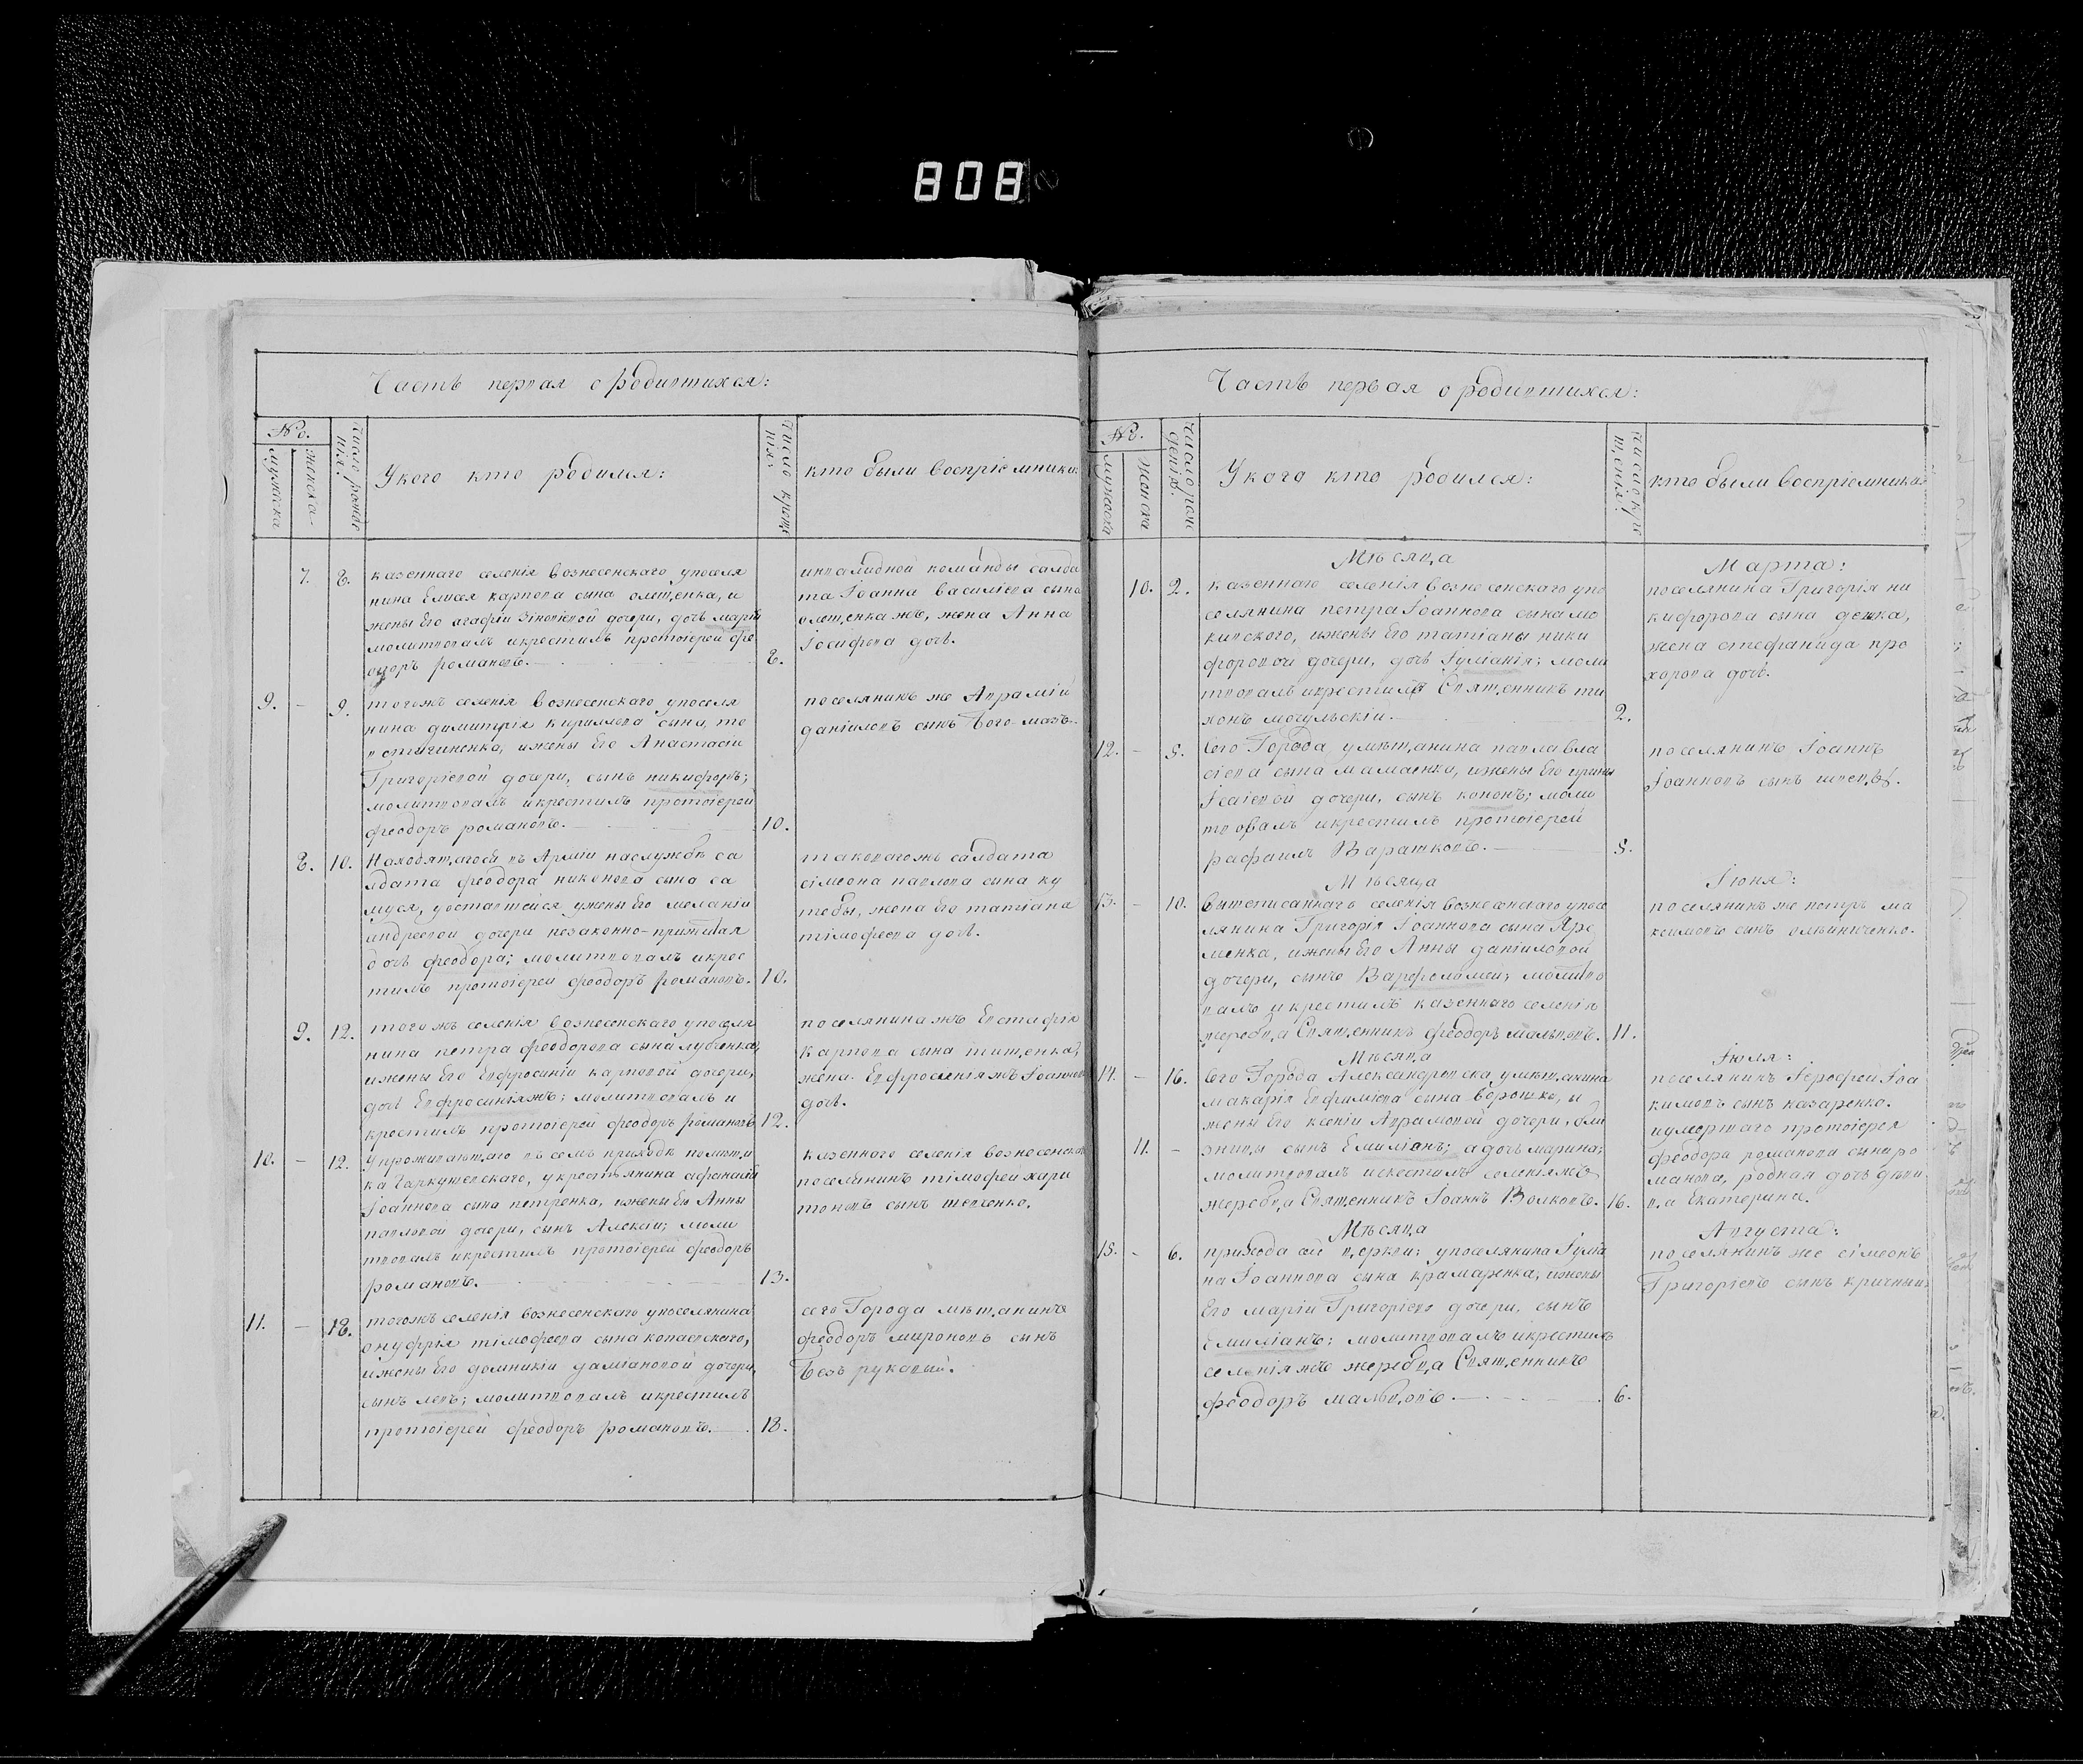 808
Часть первая о родившихся:
№.
мужеска
женска
число рожде
нія:
Укого кто родился:
число креще
нія:
кто были воспріемники:
7.
8.
казеннаго селенія вознесенскаго упоселя
нина Елисея карпова сына
жены его агафіи дочери, дочь марія
молитвовалъ икрестилъ протоіерей фе
одоръ романовъ.
8.
инвалидной команды салда
та Іоанна василіева сына
жена Анна
Іосифова дочь.
9.
–
9.
тогожъ селенія вознесенскаго упоселя
нина димитрія кириллова сына,
ижены его Анастасіи
Григоріевой дочери, сынъ никифоръ;
молитвовалъ икрестилъ протоіерей
феодоръ романовъ.
10.
поселянинъ же Авраамій
даніиловъ сынъ Богомазъ.
8.
10.
Находящагося въ Арміи наслужбѣ са
лдата феодора никонова сына са
муся, уоставшейся ужены его меланіи
андреевой дочери незаконно-прижитая
дочь феодора; молитвовалъ икрес
тилъ протоіерей феодоръ романовъ.
10.
таковагожъ салдата
сімеона павлова сина ку
тебы, жена его татіана
тімофеева дочь.
9.
12.
тогожъ селенія вознесенскаго упоселя
нина петра феодорова сына
ижены его Евфросиніи карповой дочери,
дочь Евфросиніяжъ; молитвовалъ и
крестилъ протоіерей феодоръ романовъ
12.
поселянина жъ Евстафія
карпова сина тищенка,
жена Евфросиніяжъ Іоаннова
дочь.
10.
–
12.
Упроживающаго въ семъ приходѣ помѣщи
ка Гаркушевскаго, укрестьянина афанасія
Іоаннова сына петренка, ижены его Анны
павловой дочери, сынъ Алексій; моли
твовалъ икрестилъ протоіерей феодоръ
романовъ.
13.
казенного селенія вознесенскаго
поселянинъ тімофей хари
тоновъ сынъ шевченко.
11.
–
18.
тогожъ селенія вознесенскаго упоселянина
онуфрія тімофеева сына копаевскаго,
ижены его домникіи даміановой дочери,
сынъ левъ; молитвовалъ икрестилъ
протоіерей феодоръ романовъ.
18.
сего Города мѣщанинъ
феодоръ мироновъ сынъ
Безъ рукавый.
Часть первая о родившихся:
№.
мужеска
женска
число рож
денія.
Укого кто родился:
число кре
щенія:
кто были воспріемника:
Мѣсяца
Марта:
10.
2.
казеннаго селенія вознесенскаго упо
селянина петра Іоаннова сына мо
ижены его татіаны ники
форовой дочери, дочь Іуліанія; моли
твовалъ икрестилъ Священникъ ти
хонъ могульскій.
2.
поселянина Григорія ни
кифорова сына дейка,
жена стефанида про
хорова дочь.
12.
–
5.
Сего Города умѣщанина павла вла
сіева сына мамаенка, ижены его ирины
Ісаіевой дочери, сынъ кононъ; моли
твовалъ икрестилъ протоіерей
рафаилъ Варашковъ.
5.
поселянинъ Іоаннъ
Іоанновъ сынъ швецъ.
Мѣсяца
Іюня:
13.
–
10.
вышеписаннаго селенія вознесенскаго упосе
лянина Григорія Іоаннова сына Яре
менка, ижены его Анны даніиловой
дочери, сынъ Варфоломей; молитво
валъ икрестилъ казеннаго селенія
жеребца Священникъ феодоръ мальцовъ.
11.
поселянинъ же петръ ма
ксимовъ сынъ омельниченко.
Мѣсяца
Іюля:
14.
–
16.
Сего Города Александровска умѣщанина
макарія Евфиміева сына ворошка, и
жены его ксеніи Аврамовой дочери, бли
11.
–
знецы сынъ Емиліанъ; адочь марина;
молитвовалъ икрестилъ селеніяжъ
жеребца Священникъ Іоаннъ Волковъ.
16.
поселянинъ Іерофей Іоа
кимовъ сынъ назаренко.
иумершаго протоіерея
феодора романова сына ро
манова, родная дочь дѣви
ца Екатерина.
Мѣсяца
Августа:
15.
–
6.
прихода сей церкви; упоселянина Іуліа
на Іоаннова сына крамаренка, ижены
его маріи Григоріево дочери, сынъ
Емиліанъ; молитвовалъ икрестилъ
селеніяжъ жеребца Священникъ
феодоръ мальцовъ.
6.
поселянинъ же сімеонъ
Григоріевъ сынъ кричный.